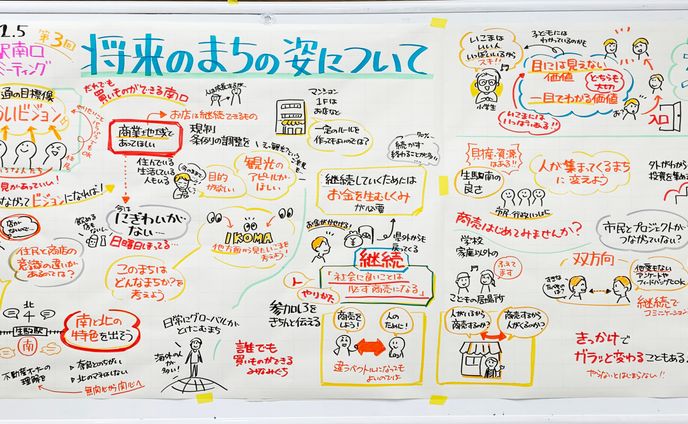 1.5
第3回
駅南口
ミーティング
将来のまちの姿について
通の目標像
ビジョン
だれでも
買いものができる南口
お店は継続できるもの
商業地域で
あってほしい
規制
条例の調整を
住んでいる
生活している
人もいる
目的
がない
観光の
アピールが
ほしい
マンション
1Fは
お店など
一定のルールを
作ってもよいのでは?
続かず
継続していくためには
お金を生むしくみ
が必要
今は
にぎわいが
ない…
日曜日休んでる…
IKOMA
他方面から見たいこまを
考えよう!
このまちは
どんなまちか?を
考えよう
住民と商店の
意識の違いが
あるのでは?
県外から
戻ってくる
継続
「社会に良いことは
必ず商売になる」
やりがい
参加レを
きちんと伝える
商売を
しよう!
人の
ために!
違うベクトルになっても
よいのでは
北
生駒駅
南
南と北の
特色を出そう
奈良とのちがい
北のマネはしない
不動産オーナーの
理解を
無関心から関心へ
日常にグローバルが
とけこむまち
海外の人が
多い!
誰でも
買いものができる
みなみぐち
いこまは
いい人
いっぱいいるから
スキ!!
小学生
子どもには
わかっているのかも
目には見えない
価値
どちらも
大切
一目でわかる価値
いこまには
いっぱいある!!
入口
財産・資源
はある!!
生駒南の
良さ
人が集まってくるまち
に変えよう
市民・行政いっしょに
外から
投資を集め
商売はじめてみませんか?
学校
家庭以外の
こどもの居場所
市民とプロジェクトが
つながっていない?
双方向
他愛もない
アンケートや
フィードバックもOK
継続して
コミュニケーション
人がいるから
商売するの?
商売するから
人がくるの?
きっかけで
ガラッと変わることもある
やらないとはじまらない!!